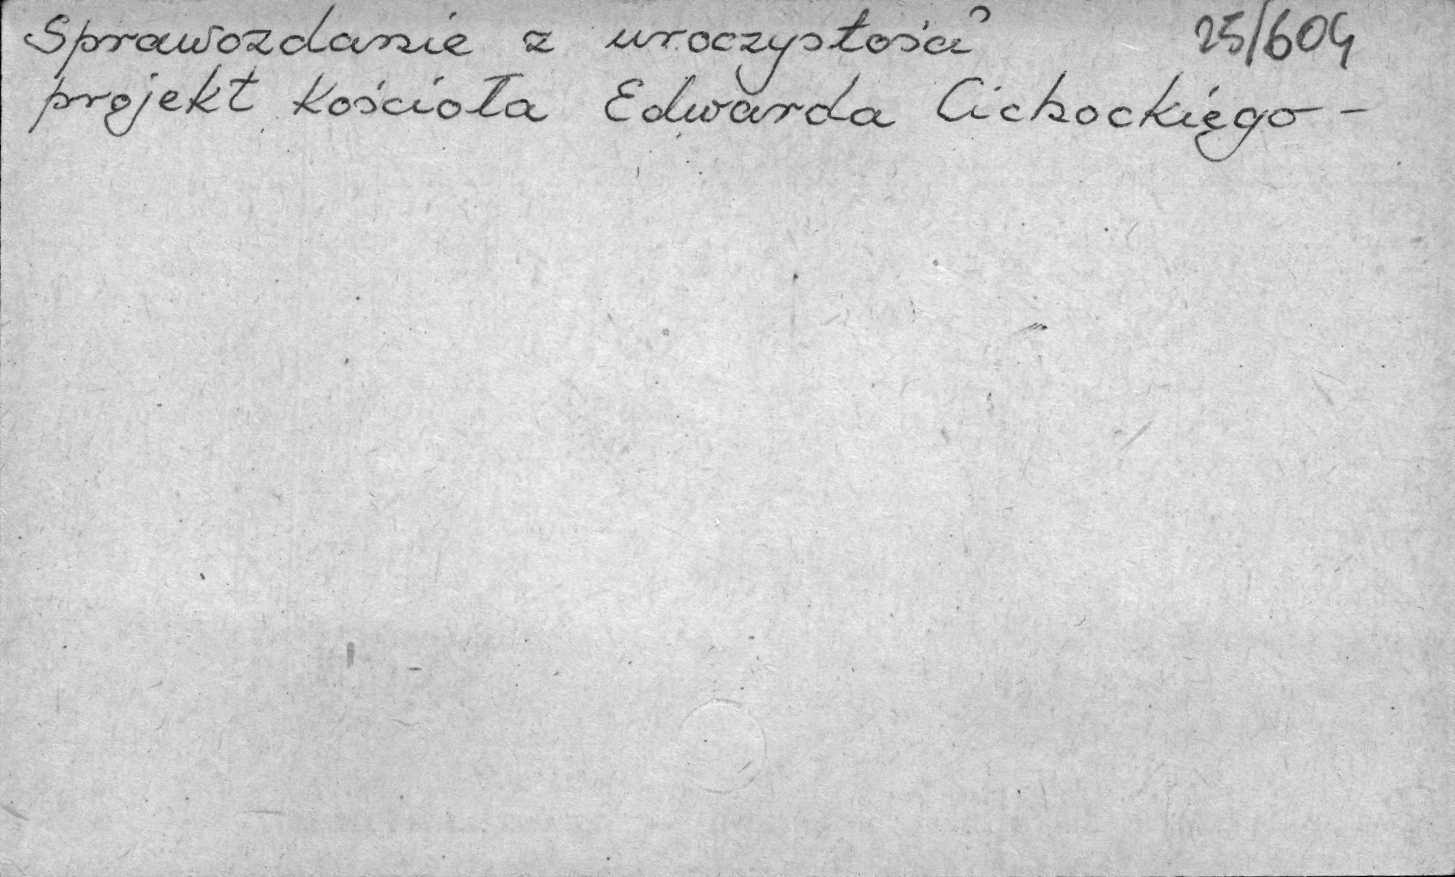 Sprawozdanie z uroczystości 25/604
projekt Kościoła Edwarda Cichockięgo -